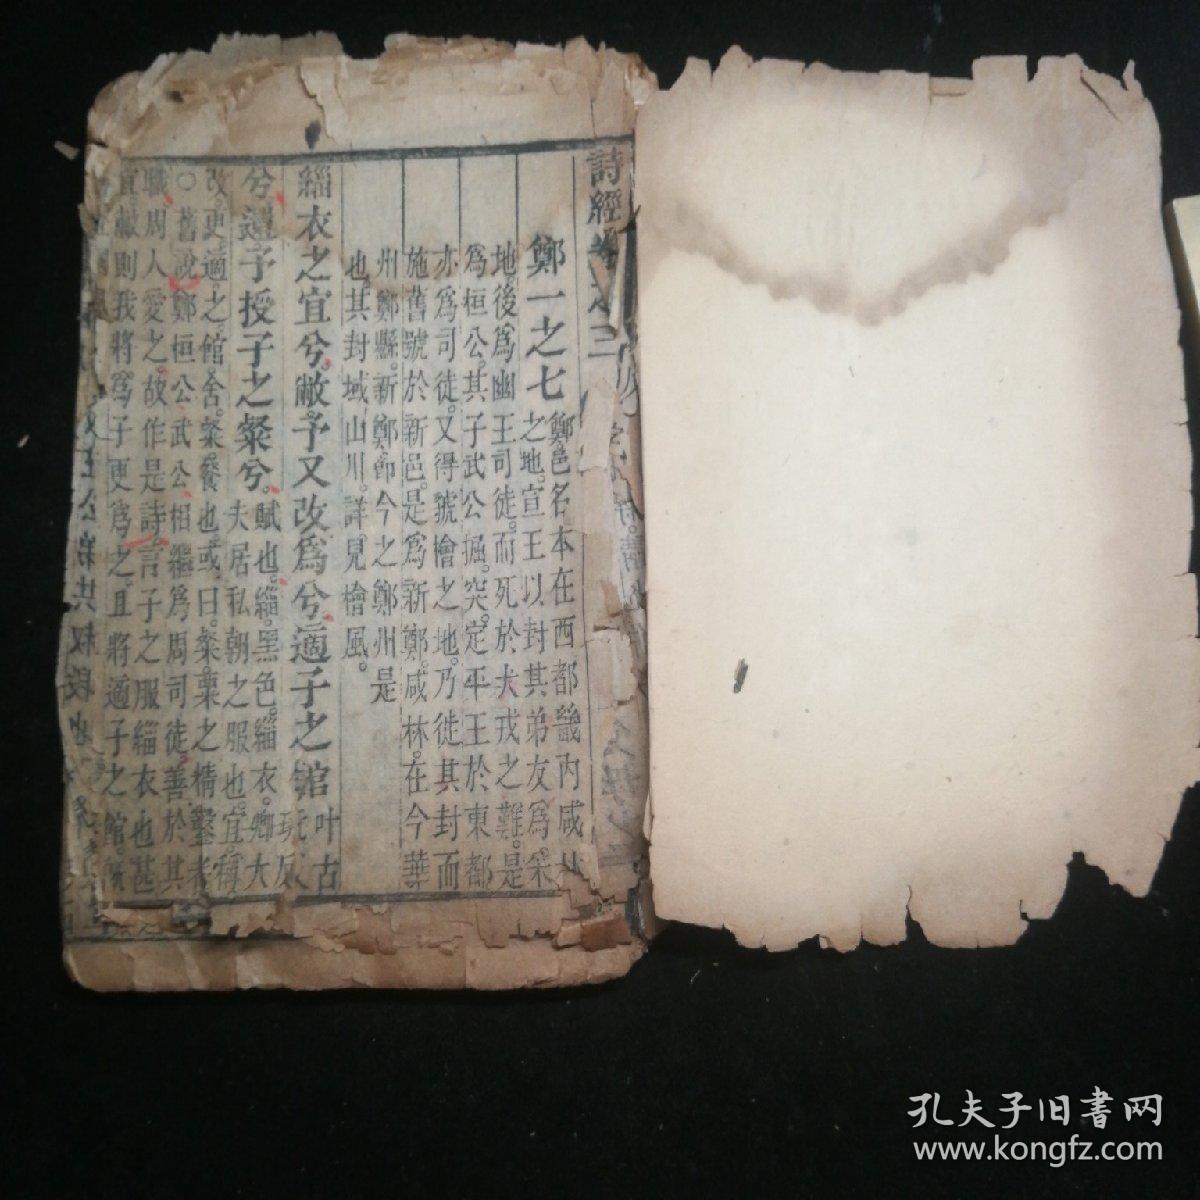 詩經卷之三
鄭一之七鄭邑名本在西都畿內咸林
之地宣王以封其弟友爲采
地後爲幽王司徒而死於犬戎之難是
爲桓公其子武公掘突定平王於東都
亦爲司徒又得虢檜之地乃徙其封而
施舊號於新邑是爲新鄭咸林在今華
州鄭縣新鄭卽今之鄭州是
也其封域山川詳見檜風
緇衣之宜兮敝予又改爲兮適子之館叶古
玩反
兮還予授子之粲兮賦也緇黑色緇衣卿大
夫居私朝之服也宜稱
改更適之館舍粲餐也或曰粲粟之精鑿者
○舊說鄭桓公武公相繼爲周司徒善於其
職周人愛之故作是詩言子之服緇衣也甚
宜敝則我將爲子更爲之且將適子之館
共叔段
孔夫子旧書网
www.kongfz.com